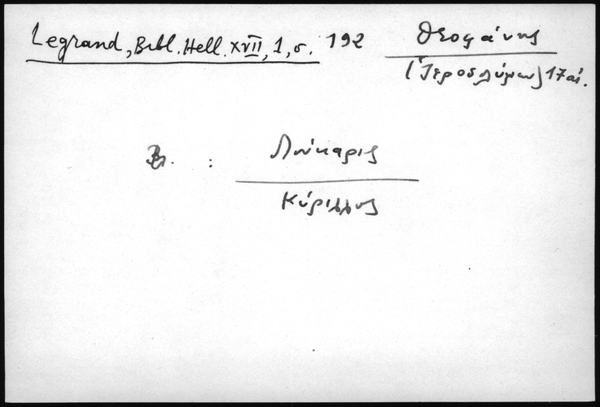 Legrand, Bibl. Hell. XVII, 1, σ. 192
Θεοφάνης
(Ἱεροσολύμων) 17 αἰ.
Βλ. : Λούκαρις
Κύριλλος